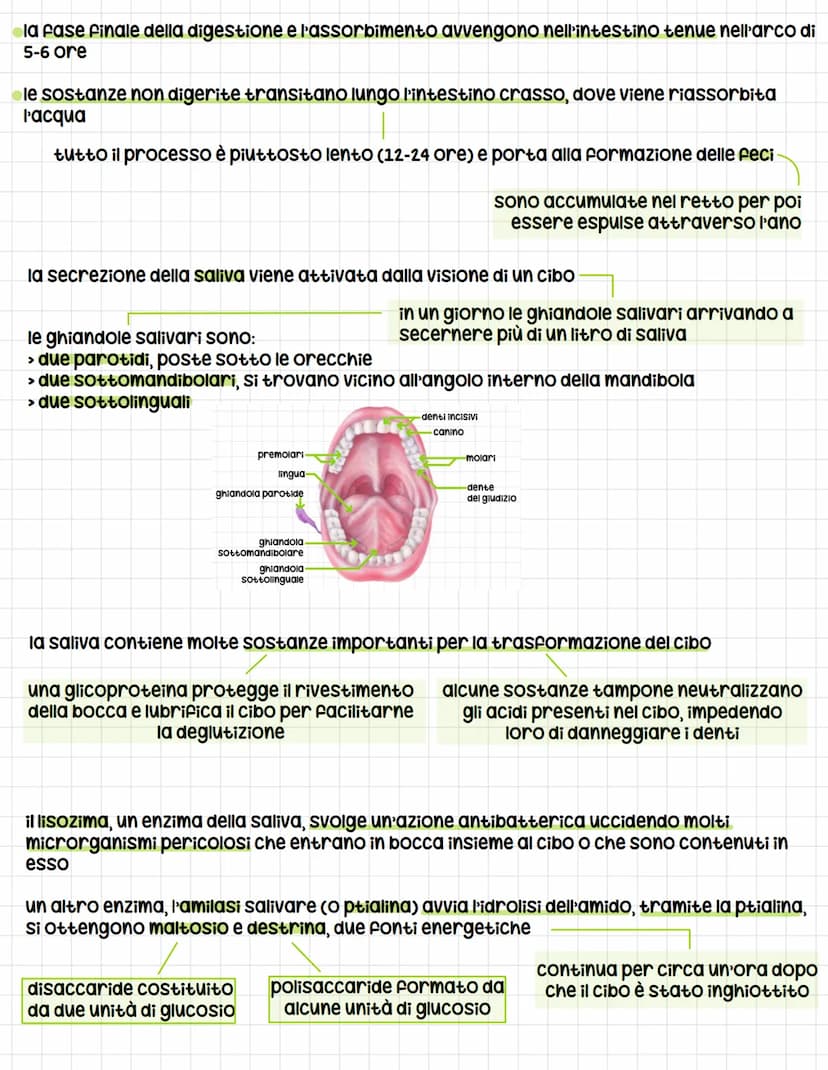 la fase finale della digestione e l'assorbimento avvengono nell'intestino tenue nell'arco di
5-6 ore
le sostanze non digerite transitano lungo l'intestino crasso, dove viene riassorbita
l'acqua
tutto il processo è piuttosto lento (12-24 ore) e porta alla formazione delle feci
sono accumulate nel retto per poi
essere espulse attraverso l'ano
la secrezione della saliva viene attivata dalla visione di un cibo
in un giorno le ghiandole salivari arrivando a
secernere più di un litro di saliva
le ghiandole salivari sono:
> due parotidi, poste sotto le orecchie
> due sottomandibolari, si trovano vicino all'angolo interno della mandibola
> due sottolinguali
denti incisivi
canino
premolari
molari
lingua
ghiandola parotide
dente
del giudizio
ghiandola
sottomandibolare
ghiandola
sottolinguale
la saliva contiene molte sostanze importanti per la trasformazione del cibo
una glicoproteina protegge il rivestimento
della bocca e lubrifica il cibo per facilitarne
la deglutizione
alcune sostanze tampone neutralizzano
gli acidi presenti nel cibo, impedendo
loro di danneggiare i denti
il lisozima, un enzima della saliva, svolge un'azione antibatterica uccidendo molti
microrganismi pericolosi che entrano in bocca insieme al cibo o che sono contenuti in
esso
un altro enzima, l'amilasi salivare (o ptialina) avvia l'idrolisi dell'amido, tramite la ptialina,
si ottengono maltosio e destrina, due fonti energetiche
continua per circa un'ora dopo
che il cibo è stato inghiottito
disaccaride costituito
da due unità di glucosio
polisaccaride formato da
alcune unità di glucosio